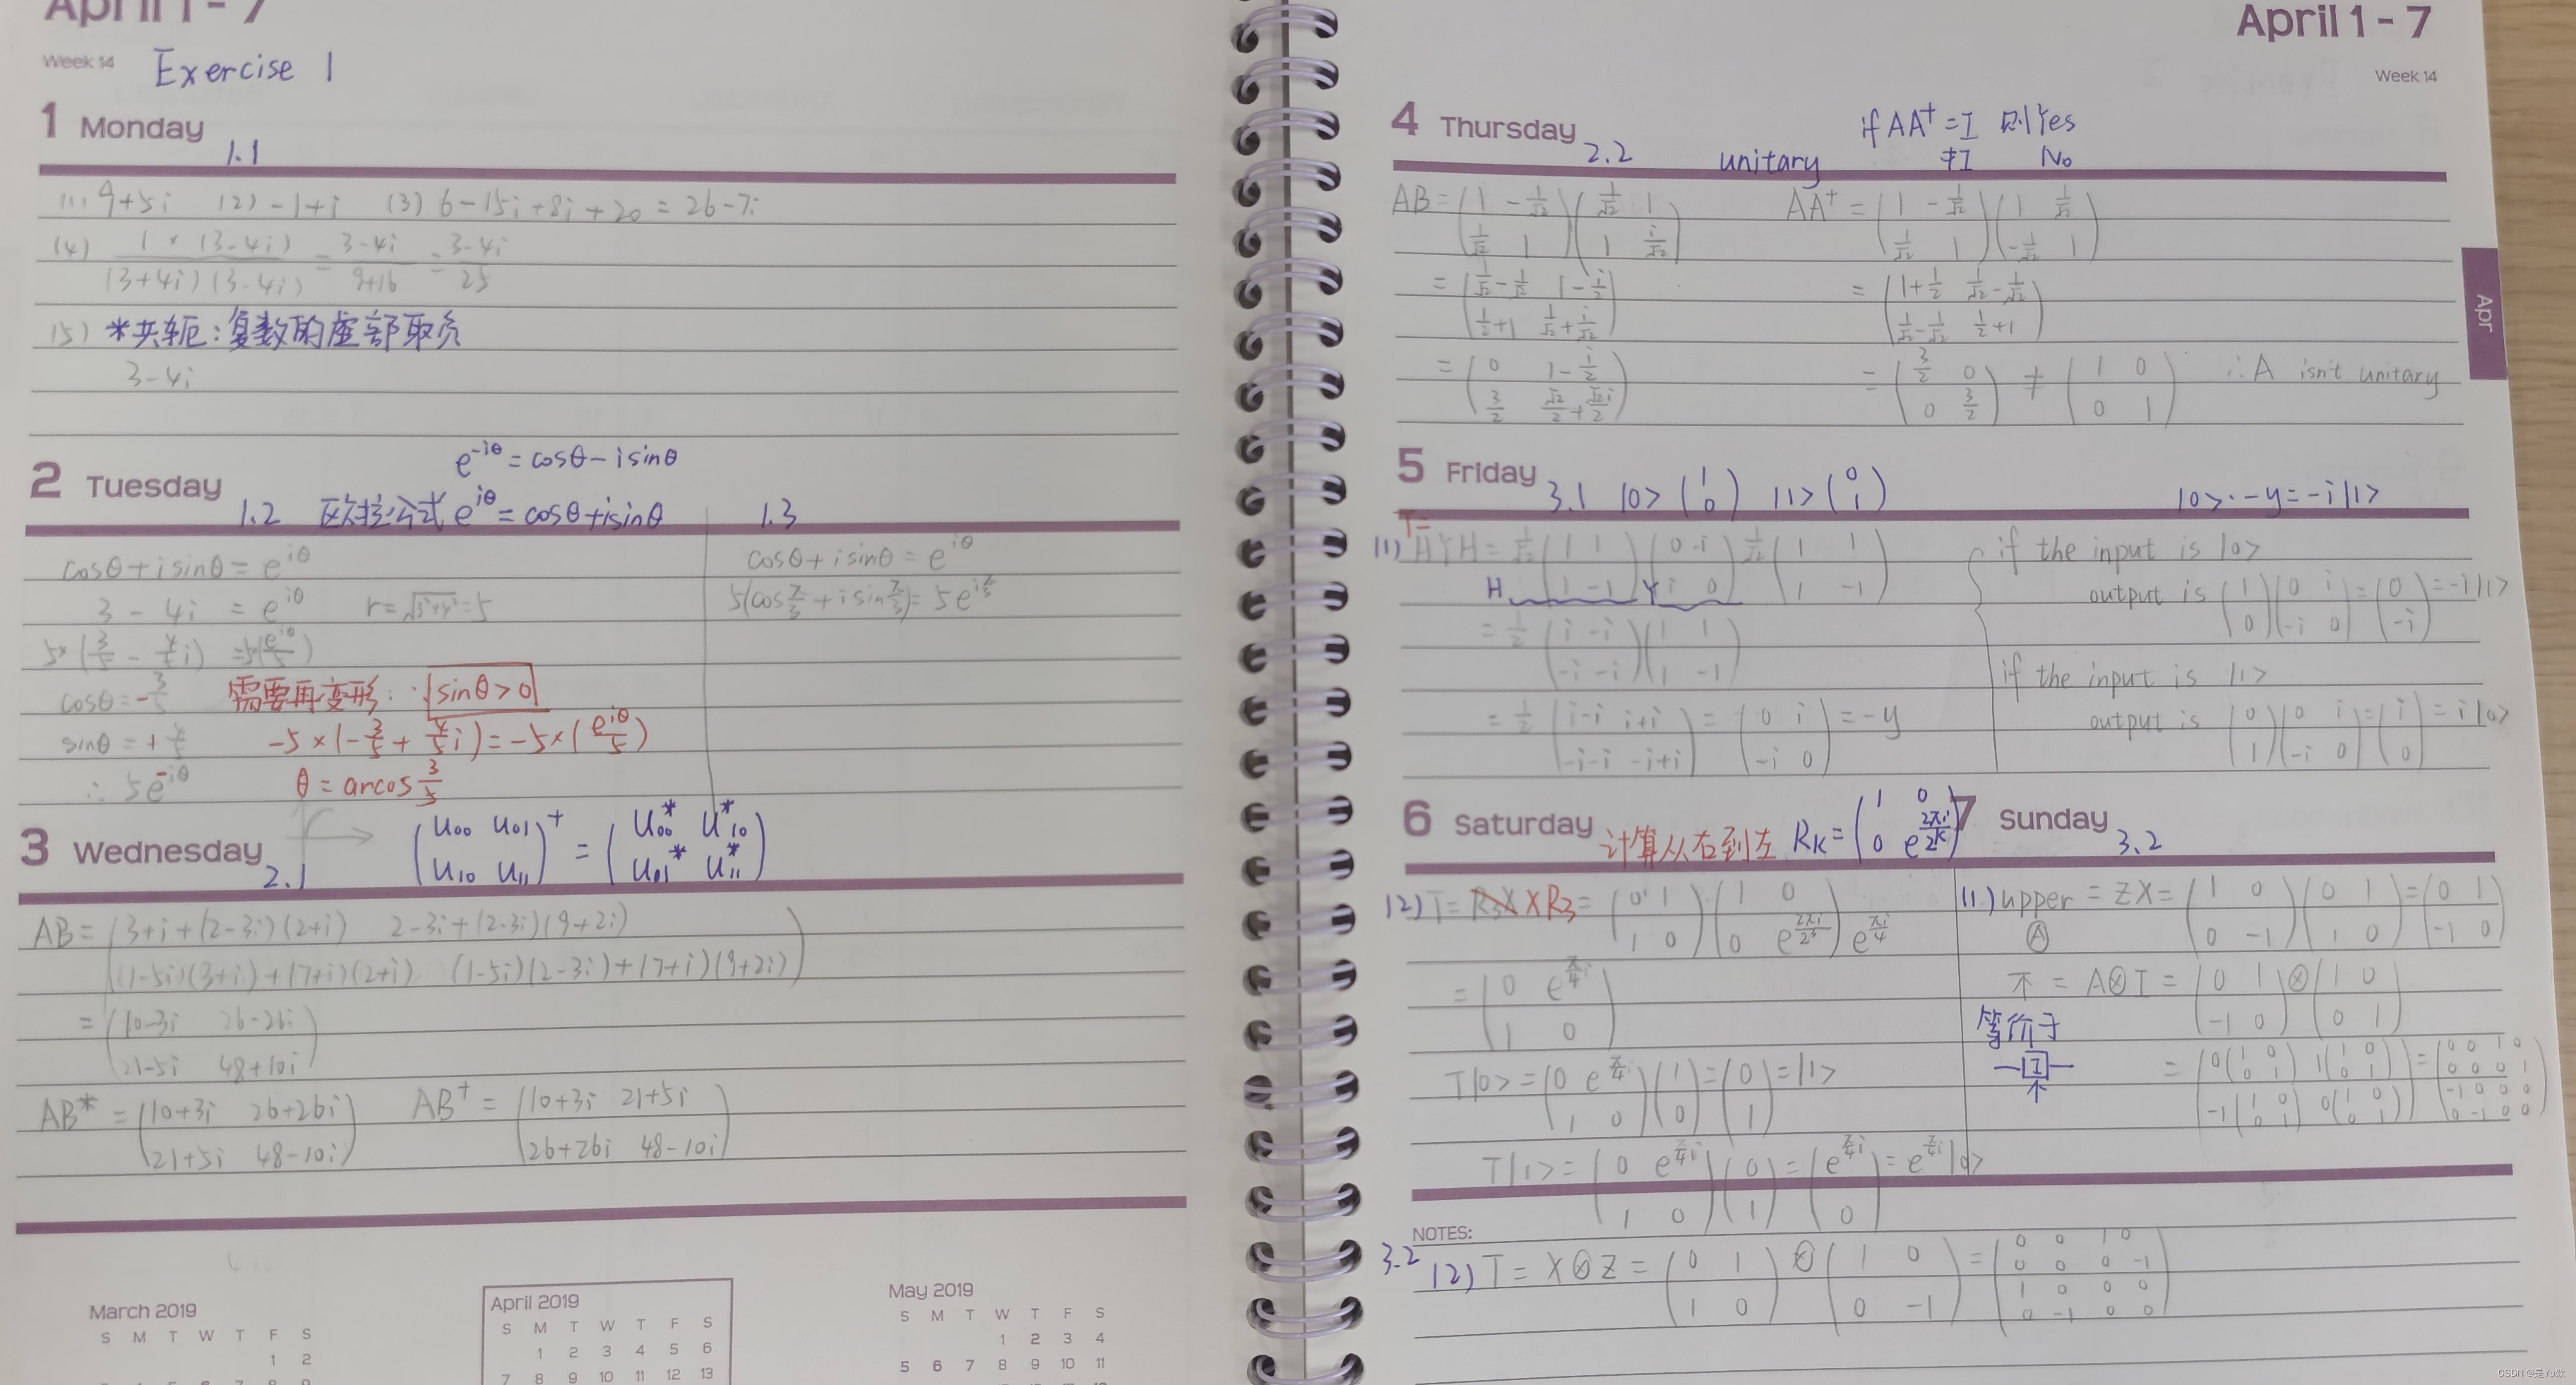 April 1 - 7
Week 14 Exercise 1
1 Monday 1.1
(1) 9+5i (2) -1+i (3) 6-15i+8i+20 = 26-7i
(4) 1×(3-4i)/(3+4i)(3-4i) = 3-4i/9+16 = 3-4i/25
(5) *共轭:复数的虚部取负
3-4i
e^{-iθ} = cosθ - isinθ
2 Tuesday 1.2 欧拉公式 e^{iθ} = cosθ+isinθ 1.3
cosθ+isinθ = e^{iθ}
3 - 4i = e^{iθ} r=√(3²+4²)=5
5×(3/5 - 4/5 i) =5(e^{iθ}/5)
cosθ=-3/5 需要再变形: sinθ>0
sinθ=+4/5 -5×(-3/5+4/5 i)=-5×(e^{iθ}/5)
∴ 5e^{-iθ} θ = arcos 3/5
cosθ+isinθ = e^{iθ}
5(cos π/3 + isin π/3) = 5e^{iπ/3}
3 Wednesday 2.1 (u00 u01 / u10 u11)^† = (u00* u10* / u01* u11*)
AB = (3+i+(2-3i)(2+i) 2-3i+(2-3i)(9+2i)
(1-5i)(3+i)+(7+i)(2+i) (1-5i)(2-3i)+(7+i)(9+2i))
= (10-3i 26-26i
21-5i 48+10i)
AB* = (10+3i 26+26i AB† = (10+3i 21+5i
21+5i 48-10i) 26+26i 48-10i)
March 2019
S M T W T F S
1 2
April 2019
S M T W T F S
1 2 3 4 5 6
7 8 9 10 11 12 13
May 2019
S M T W T F S
1 2 3 4
5 6 7 8 9 10 11
April 1 - 7
Week 14
Apr
4 Thursday 2.2 unitary if AA†=I 则Yes
≠I No
AB = (1 -1/√2 / 1/√2 1)(1/√2 1 / 1 i/√2) AA† = (1 -1/√2 / 1/√2 1)(1 1/√2 / -1/√2 1)
= (1/√2-1/√2 1-i/2 / 1/2+1 1/√2+i/√2) = (1+1/2 1/√2-1/√2 / 1/√2-1/√2 1/2+1)
= (0 1-i/2 / 3/2 √2/2+√2i/2) = (3/2 0 / 0 3/2) ≠ (1 0 / 0 1) ∴A isn't unitary
5 Friday 3.1 |0> (1 / 0) |1> (0 / 1) |0>·-y=-i|1>
T=
(1) HYH = 1/√2 (1 1 / 1 -1)(0 -i / i 0) 1/√2 (1 1 / 1 -1)
H Y
= 1/2 (i -i / -i -i)(1 1 / 1 -1)
= 1/2 (i-i i+i / -i-i -i+i) = (0 i / -i 0) = -y
if the input is |0>
output is (1 / 0)(0 i / -i 0)=(0 / -i)=-i|1>
if the input is |1>
output is (0 / 1)(0 i / -i 0)=(i / 0)=i|0>
6 Saturday 计算从右到左 Rk=(1 0 / 0 e^{2πi/2^k})
(2) T= R3X XR3 = (0 1 / 1 0)(1 0 / 0 e^{2πi/2^3}) e^{πi/4}
= (0 e^{π/4 i} / 1 0)
T|0> = (0 e^{π/4 i} / 1 0)(1 / 0)=(0 / 1)=|1>
T|1> = (0 e^{π/4 i} / 1 0)(0 / 1)=(e^{π/4 i} / 0)=e^{π/4 i}|0>
7 Sunday 3.2
(1.) upper = ZX = (1 0 / 0 -1)(0 1 / 1 0)=(0 1 / -1 0)
A
不 = A⊗I = (0 1 / -1 0)⊗(1 0 / 0 1)
等价于
I = (0(1 0 / 0 1) 1(1 0 / 0 1) / -1(1 0 / 0 1) 0(1 0 / 0 1)) = (0 0 1 0 / 0 0 0 1 / -1 0 0 0 / 0 -1 0 0)
不
NOTES:
3.2 (2) T = X⊗Z = (0 1 / 1 0)⊗(1 0 / 0 -1) = (0 0 1 0 / 0 0 0 -1 / 1 0 0 0 / 0 -1 0 0)
CSDN @是Yu欸